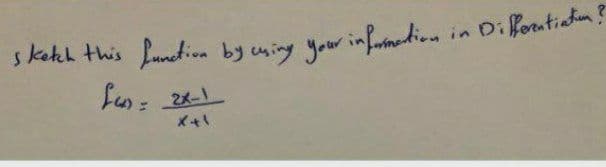 sketch this function by using your information in Differentiation?
f(x) = 2x-1
x+1